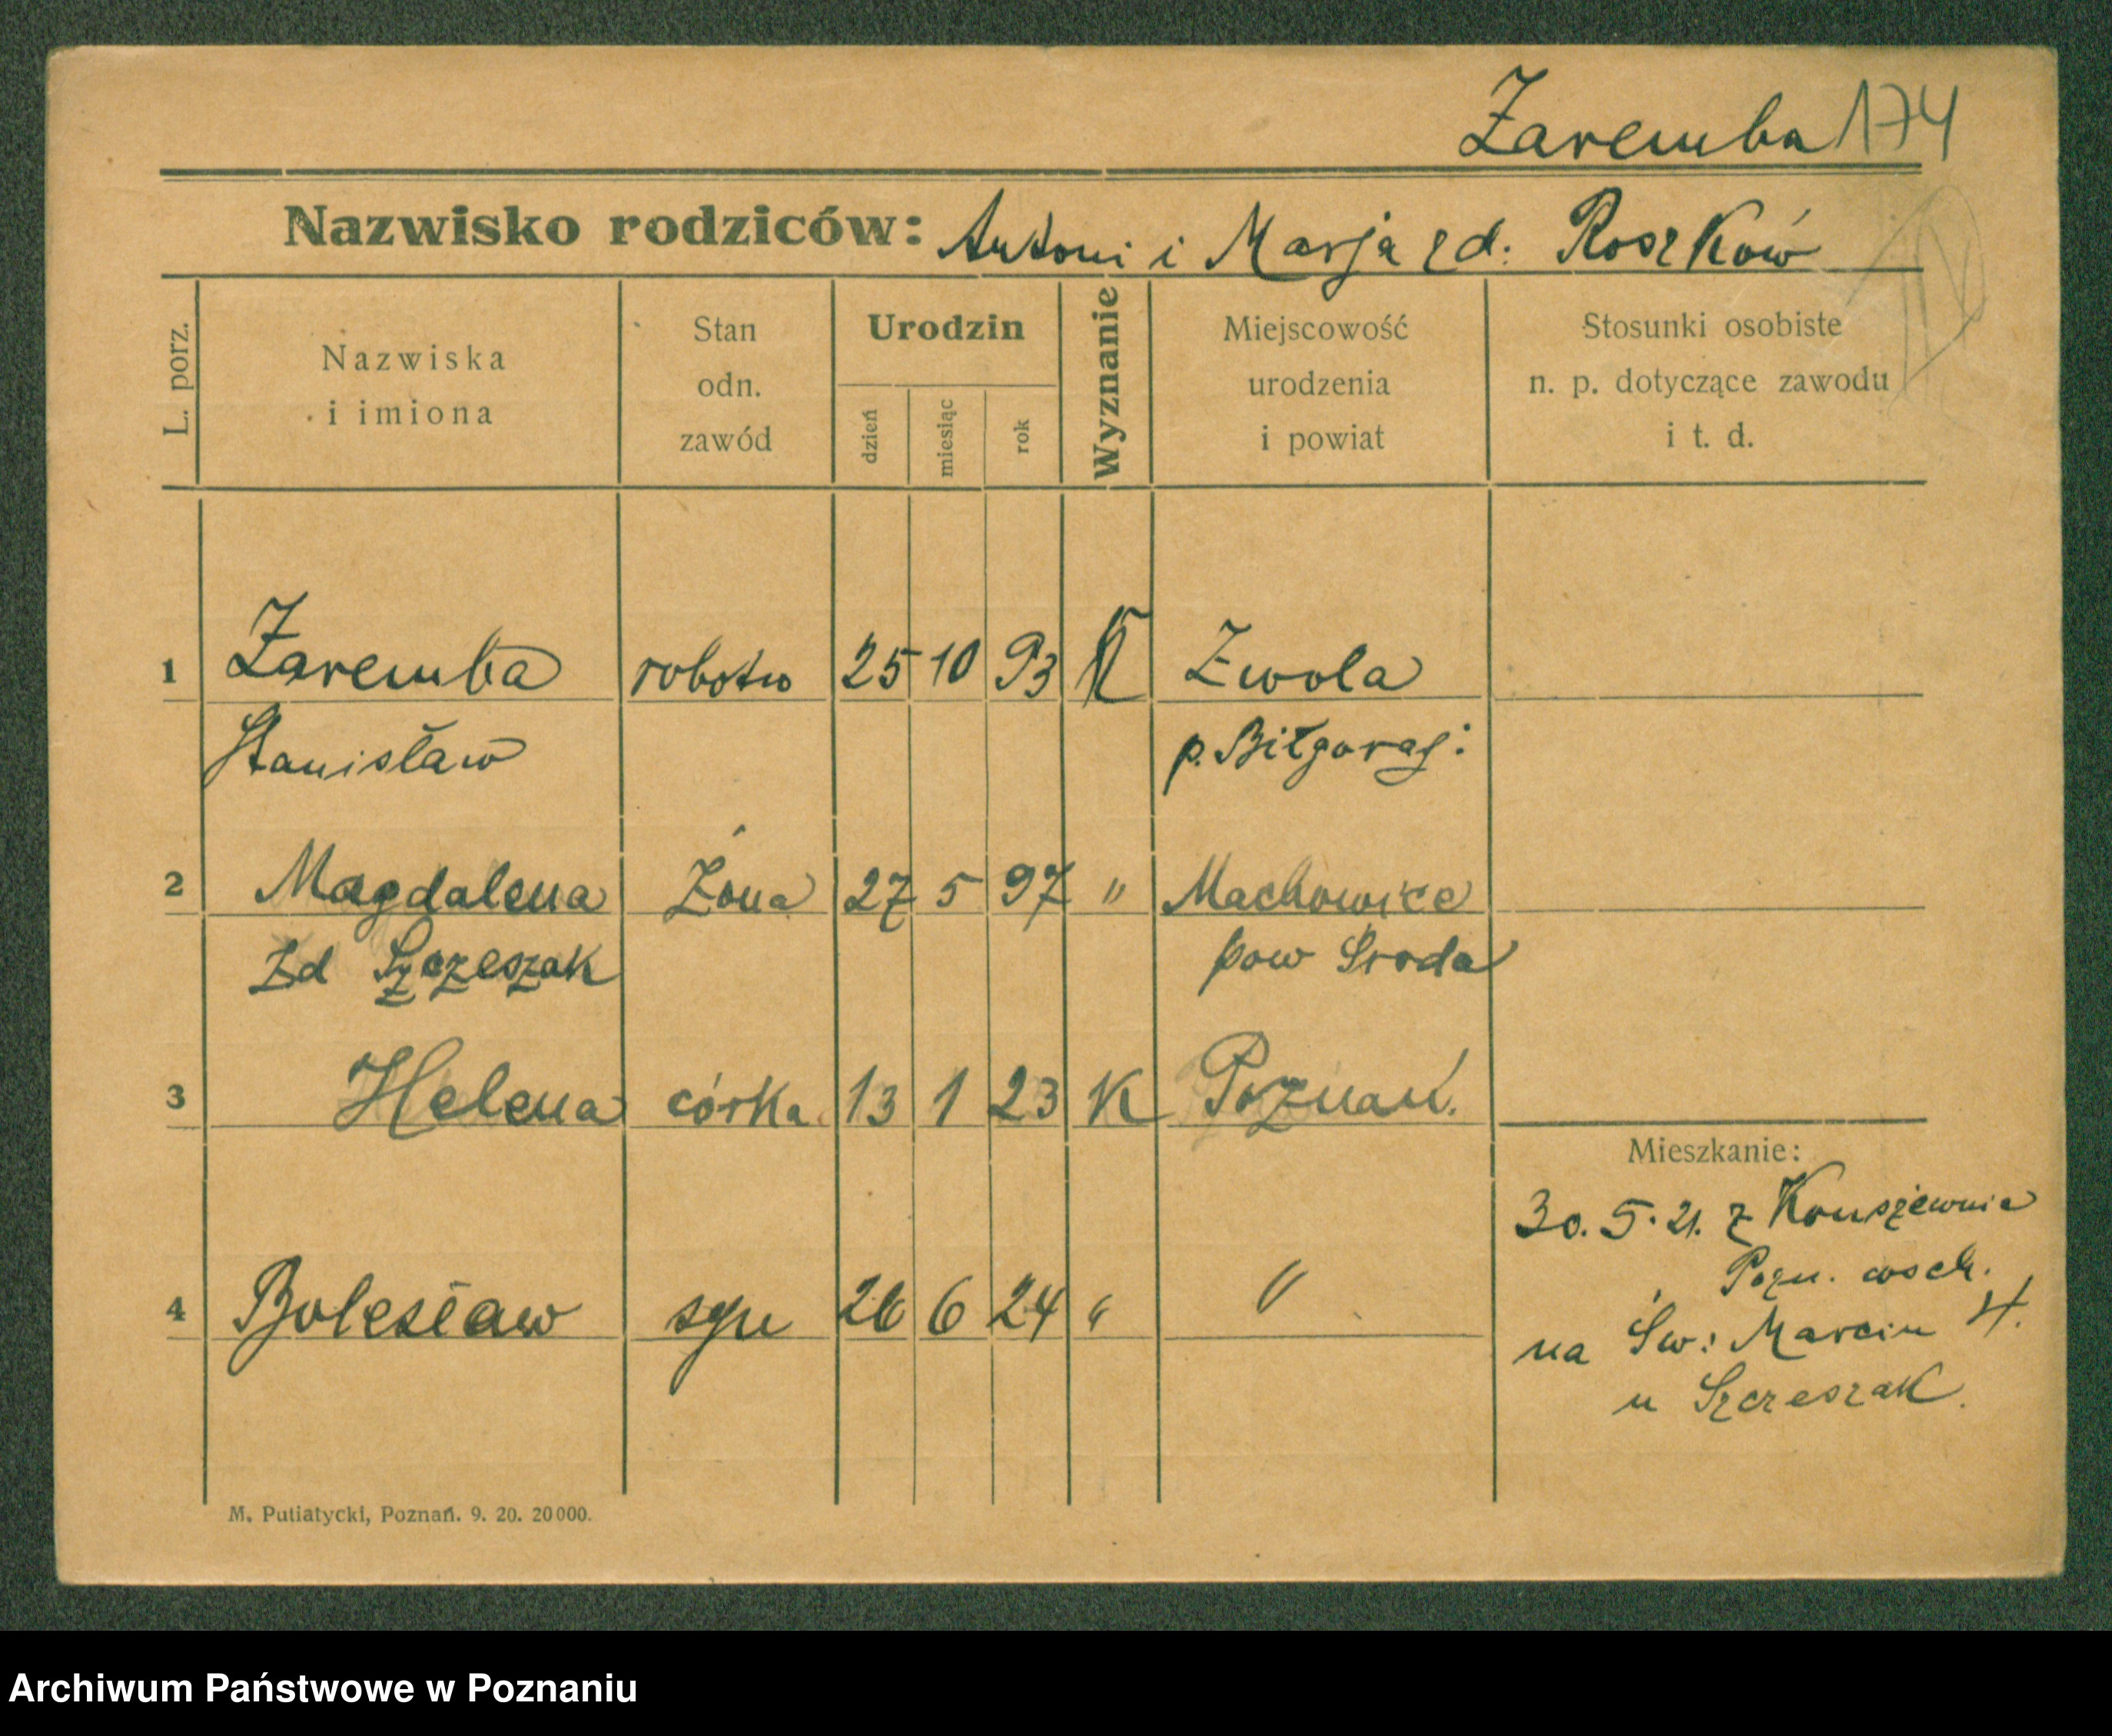 Zaremba 174
Nazwisko rodziców: Antoni i Marja zd: Roszków
L. porz.
Nazwiska
i imiona
Stan
odn.
zawód
Urodzin
dzień
miesiąc
rok
Wyznanie
Miejscowość
urodzenia
i powiat
Stosunki osobiste
n. p. dotyczące zawodu
i t. d.
1 Zaremba robotn 25 10 93 K Zwola
Stanisław p. Biłgoraj:
2 Magdalena Żona 27 5 97 " Machowice
Zd Szczeszak pow Środa
3 Helena córka 13 1 23 K Poznań.
Mieszkanie:
30. 5. 21. z
Pozn. wsch.
4 Bolesław syn 26 6 24 " "
na Św: Marcin
u Szczeszak.
M. Putiatycki, Poznań. 9. 20. 20000.
Archiwum Państwowe w Poznaniu